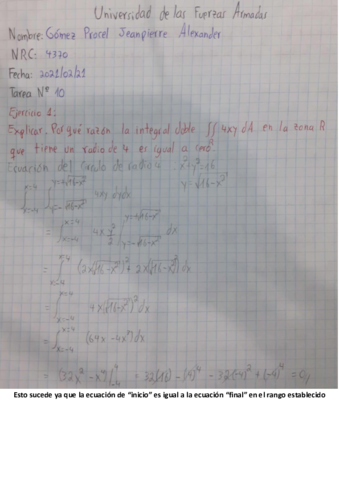 Universidad de las Fuerzas Armadas
Nombre: Gómez Procel Jeanpierre Alexander
NRC: 4370
Fecha: 2021/02/21
Tarea N° 10
Ejercicio 1:
Explicar. Por qué razón la integral doble ∬ 4xy dA en la zona R
que tiene un radio de 4 es igual a cero.
Ecuación del círculo de radio 4 x²+y²=16
y=√16-x²
∫ x=-4 x=4 ∫ y=-√16-x² y=+√16-x² 4xy dydx
= ∫ x=-4 x=4 4x y²/2 ∫ y=-√16-x² y=+√16-x² dx
= ∫ x=-4 x=4 (2x(√16-x²)² + 2x(√16-x²)²) dx
= ∫ x=-4 x=4 4x(√16-x²)² dx
= ∫ x=-4 x=4 (64x - 4x³) dx
= (32x² - x⁴)|-4 4 = 32(16) - (4)⁴ - 32(-4)² + (-4)⁴ = 0//
Esto sucede ya que la ecuación de “inicio” es igual a la ecuación “final” en el rango establecido